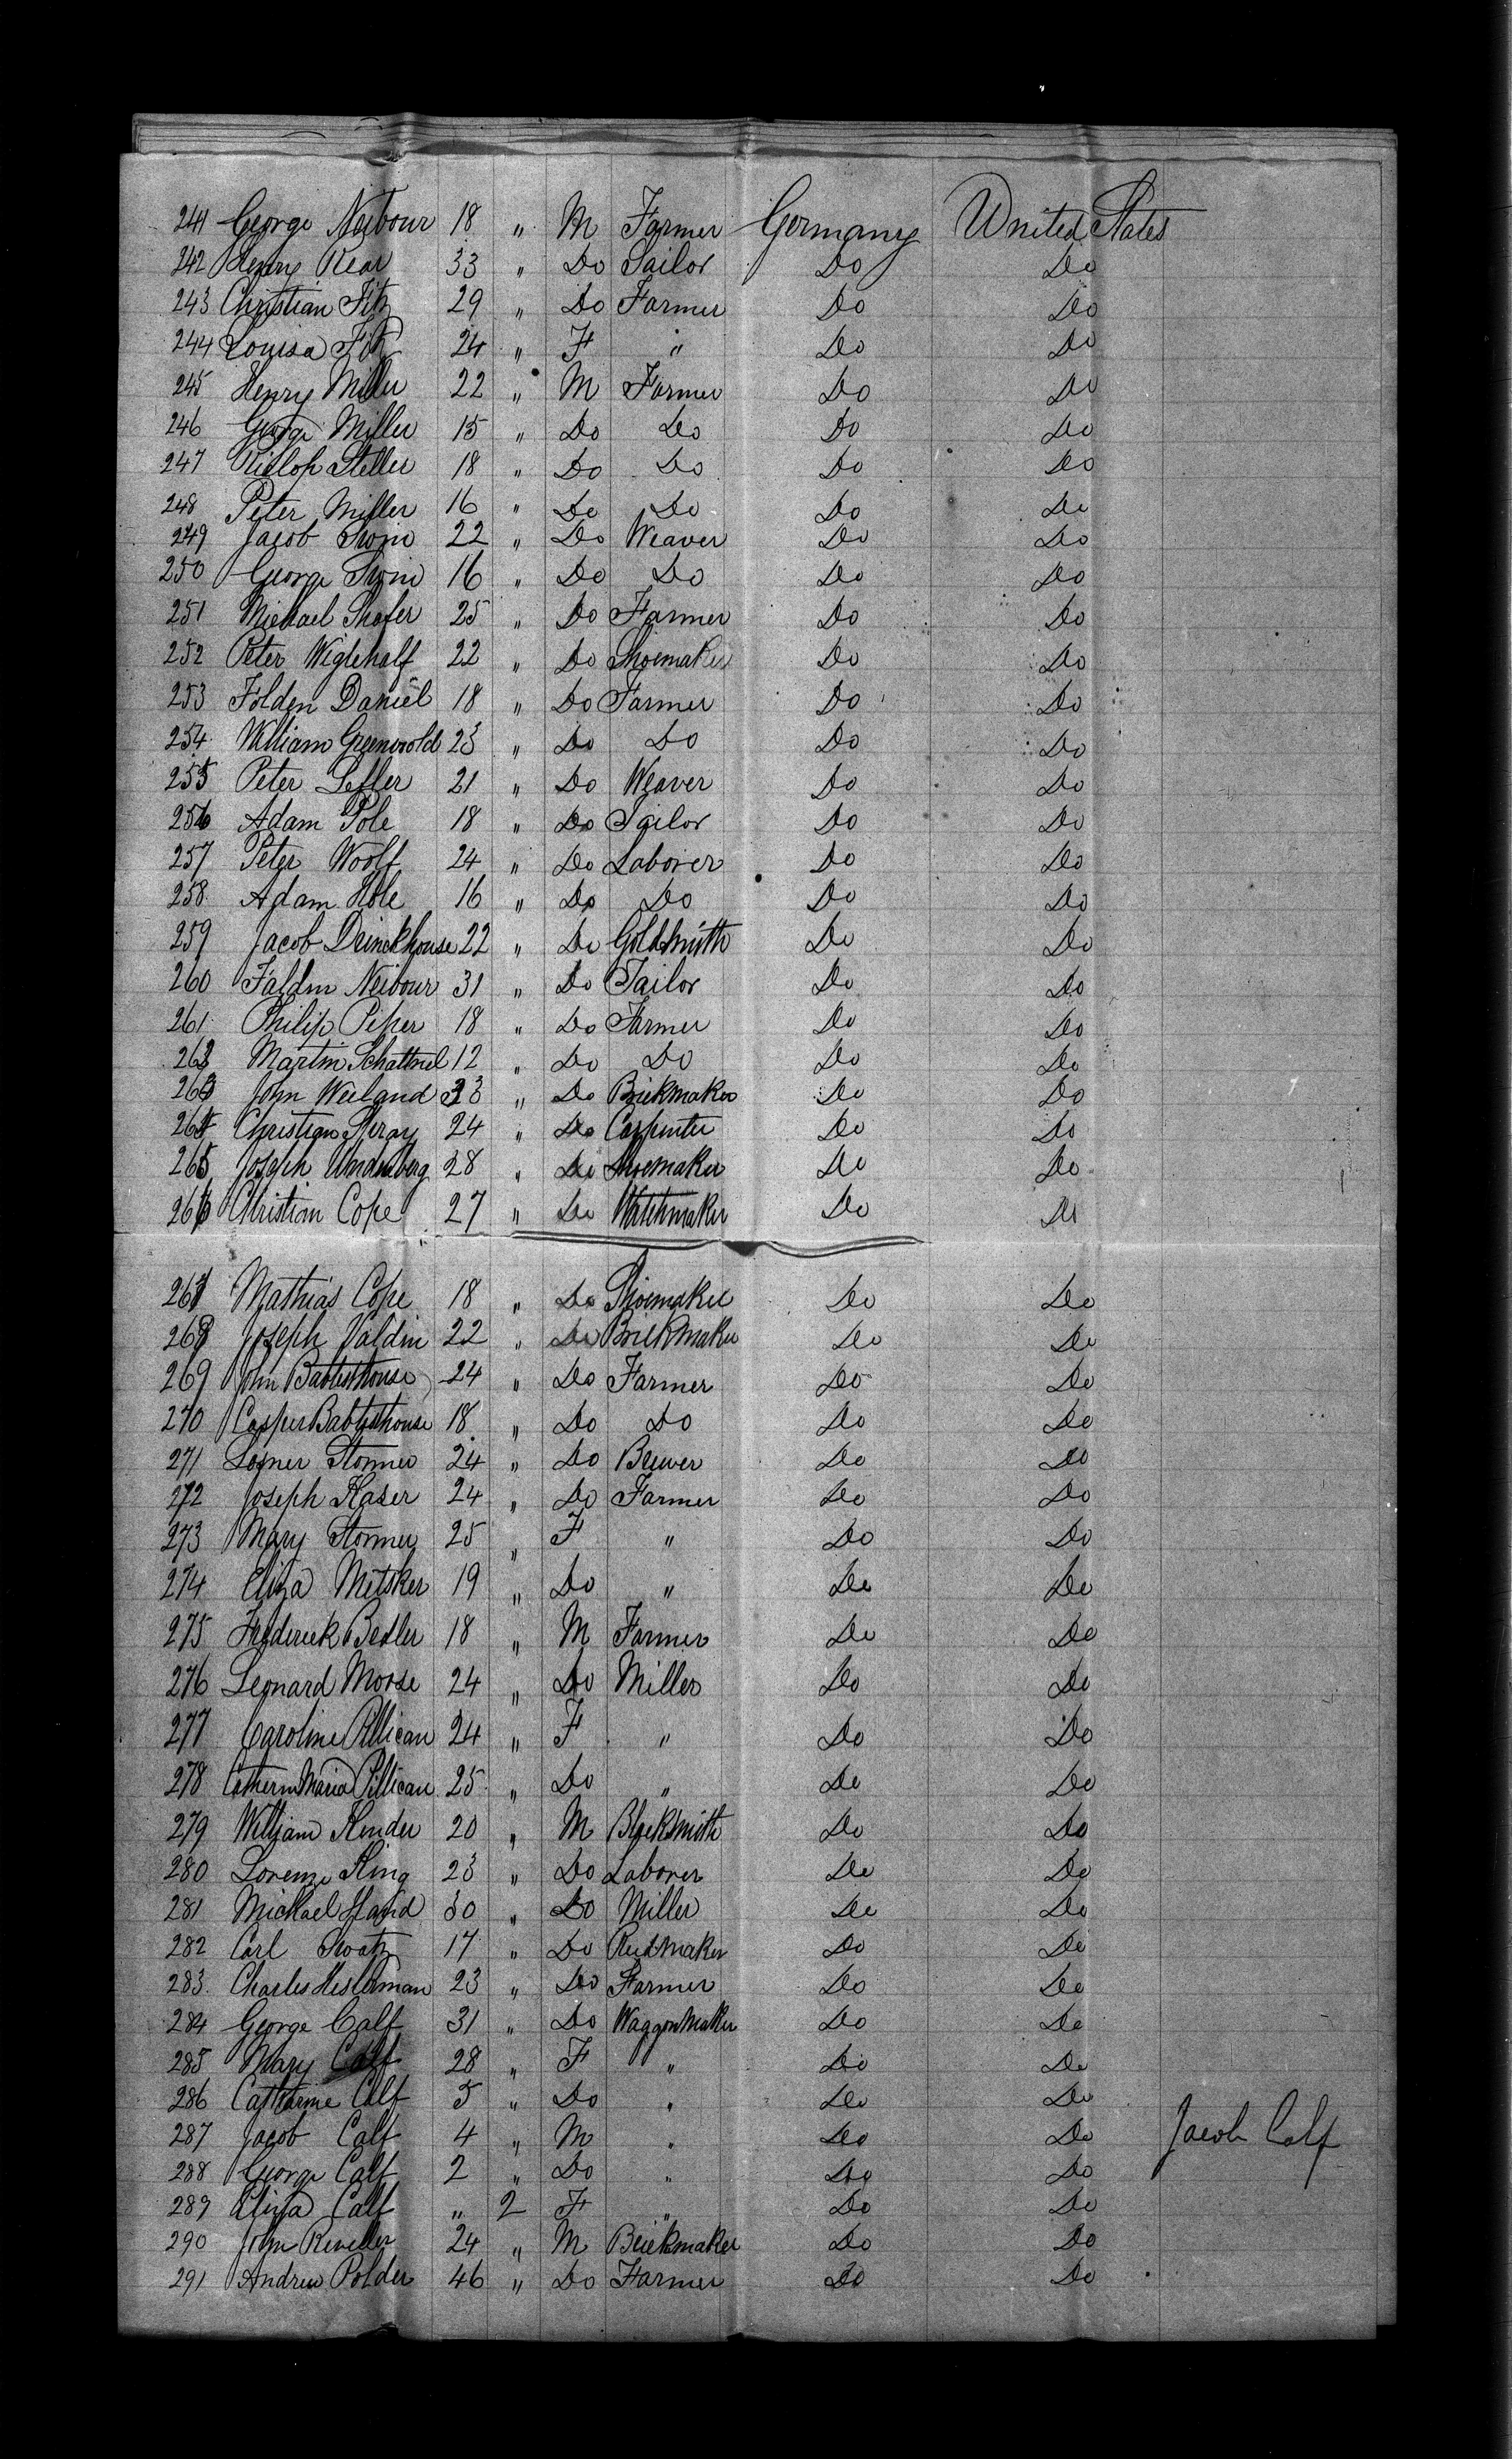 241 George Neibour 18 " M Farmer Germany United States
242 Henry Rear 33 " Do Sailor Do Do
243 Christian Fitz 29 " Do Farmer Do Do
244 Louisa Fitz 24 " F " Do Do
245 Henry Miller 22 " M Farmer Do Do
246 George Miller 15 " Do Do Do Do
247 Steller 18 " Do Do Do Do
248 Peter Miller 16 " Do Do Do Do
249 Jacob 22 " Do Weaver Do Do
250 George 16 " Do Do Do Do
251 Michael Shafer 25 " Do Farmer Do Do
252 Peter Wiglehalf 22 " Do Shoemaker Do Do
253 Folden Daniel 18 " Do Farmer Do Do
254 William Greenwold 23 " Do Do Do Do
255 Peter Lefler 21 " Do Weaver Do Do
256 Adam Pole 18 " Do Tailor Do Do
257 Peter Woolf 24 " Do Laborer Do Do
258 Adam Hole 16 " Do Do Do Do
259 Jacob Drinckhouse 22 " Do Goldsmith Do Do
260 Faldin Neibour 31 " Do Tailor Do Do
261 Philip Piper 18 " Do Farmer Do Do
262 Martin 12 " Do Do Do Do
263 John Weiland 33 " Do Brickmaker Do Do
264 Christian 24 " Do Carpenter Do Do
265 Joseph Undenberg 28 " Do Shoemaker Do Do
266 Christian Cope 27 " Do Watchmaker Do Do
267 Mathias Cope 18 " Do Shoemaker Do Do
268 Joseph Valdin 22 " Do Brickmaker Do Do
269 John Babtisthouse 24 " Do Farmer Do Do
270 Casper Babtisthouse 18 " Do Do Do Do
271 Stormer 24 " Do Brewer Do Do
272 Joseph Kaser 24 " Do Farmer Do Do
273 Mary Stormer 25 " F " Do Do
274 Eliza Metsker 19 " Do " Do Do
275 Frederick Bedler 18 " M Farmer Do Do
276 Leonard Morse 24 " Do Miller Do Do
277 Caroline Pillican 24 " F " Do Do
278 Catherin Maria Pillican 25 " Do " Do Do
279 William Kender 20 " M Blacksmith Do Do
280 Lorenz King 23 " Do Laborer Do Do
281 Michael Hand 30 " Do Miller Do Do
282 Carl Swatz 17 " Do Reedmaker Do Do
283 Charles Hesterman 23 " Do Farmer Do Do
284 George Calf 31 " Do Waggonmaker Do Do
285 Mary Calf 28 " F " Do Do
286 Catharine Calf 5 " Do " Do Do
287 Jacob Calf 4 " M " Do Do Jacob Calf
288 George Calf 2 " Do " Do Do
289 Eliza Calf " 2 F " Do Do
290 John Reveller 24 " M Brickmaker Do Do
291 Andrew Polder 46 " Do Farmer Do Do